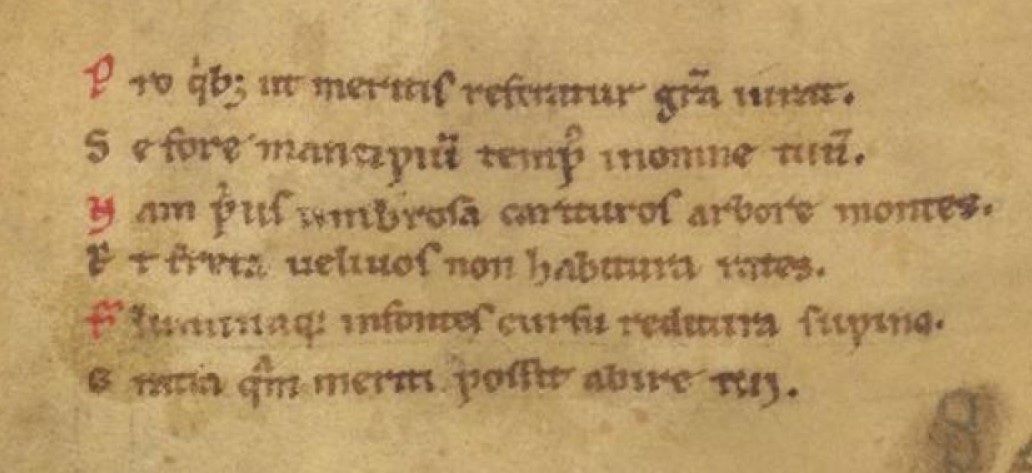 P ro qͥb; ut meritis referatur gr̄a iurat.
S e fore mancipiū temp᷒ inomne tuū.
N am pͥus umbrosa carituros arbore montes.
E t freta ueliuos non habitura rates.
F luminaq; infontes cursu reditura supino.
G ratia qͣm meriti possit abire tui.